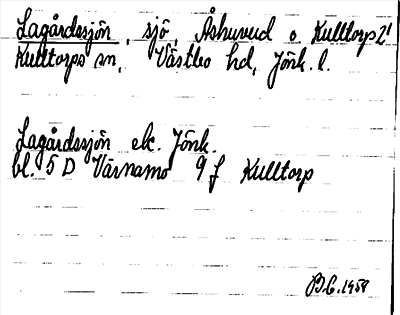 Lagårdssjön, sjö, Åshuvud o Kulltorp 2¹
Kulltorps sn, Västbo hd, Jönk. l.
Lagårdssjön ek. Jönk.
bl. 5 D Värnamo 9 f Kulltorp
1958